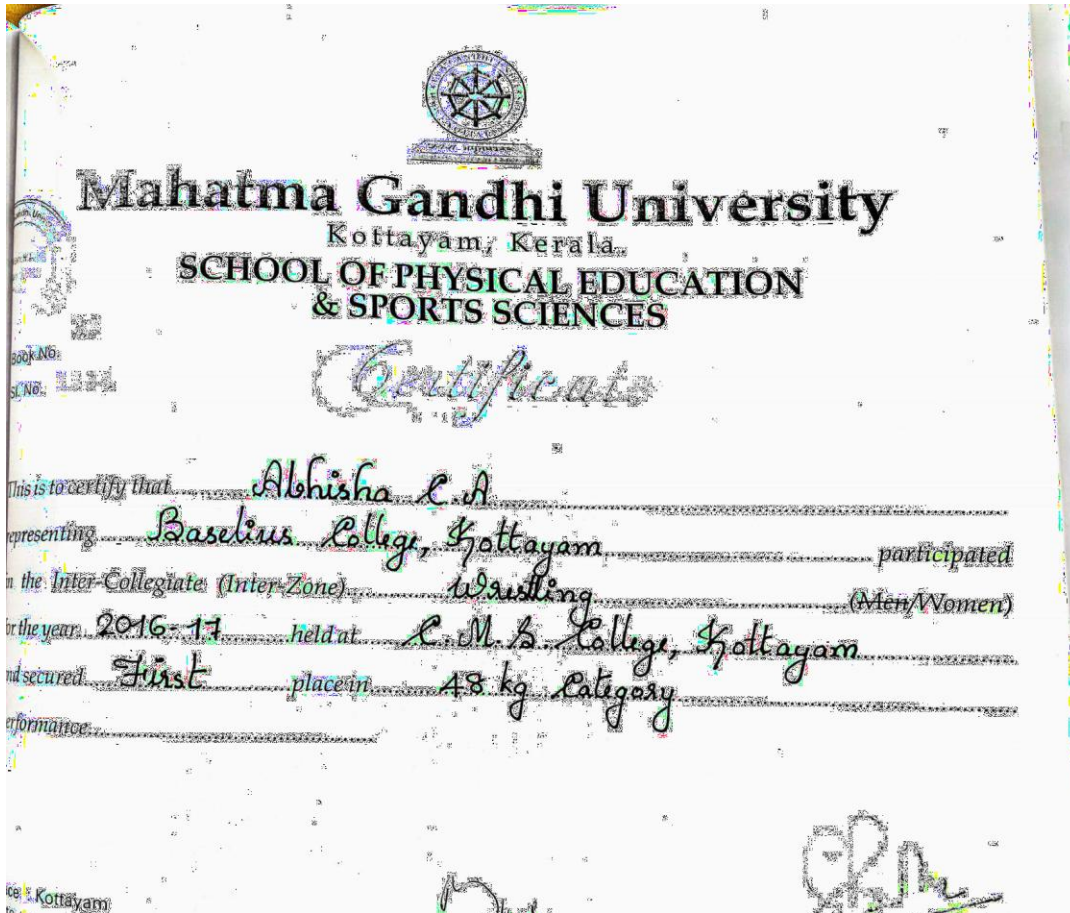 Mahatma Gandhi University
Kottayam, Kerala.
SCHOOL OF PHYSICAL EDUCATION
& SPORTS SCIENCES
Book No.
SL No.
Certificate
This is to certify that Abhisha C.A
representing Baselius College, Kottayam participated
in the Inter-Collegiate (Inter-Zone) Wrestling (Men/Women)
for the year 2016-17 held at C.M.S. College, Kottayam
and secured First place in 48 kg Category
performance
Kottayam